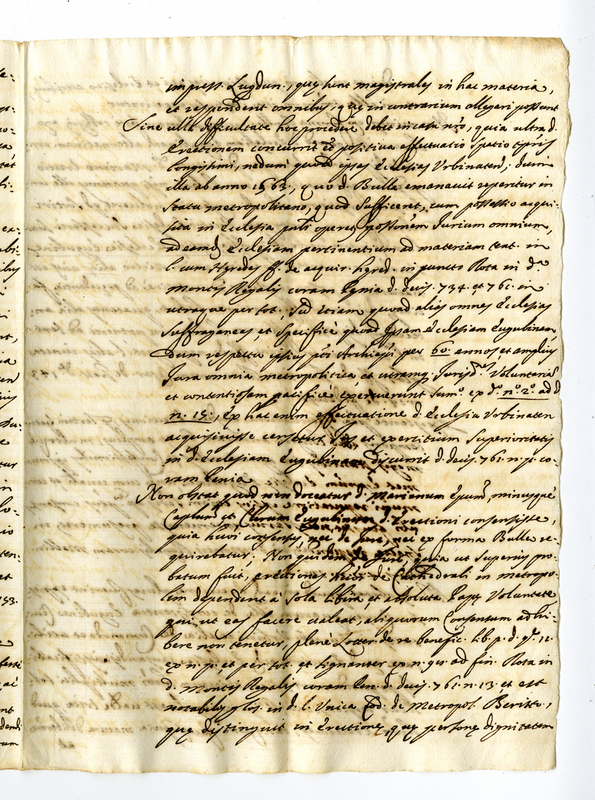 impress. Lugdun., quę sunt magistrales in hac materia,
et respondent omnibus, quę in contrarium allegari possunt
Sine ulla difficultate hoc procedere debet in casu nro, quia ultra d.
Erectionem concurrit et positiva effectuatio spatio tpris
longissimi, nedum quoad ipsas Ecclesias Urbinaten; dum
illa ab anno 1563, quo d. Bulla emanavit reperitur in
statu metropolitano, quod sufficeret, cum possessio acqui-
sita in Ecclesia operet possessionem Jurium omnium,
ad eamd. Ecclesiam pertinentium ad materiam text. in
l. cum hęredes ff. de acquir. hęred. in puncto Rota in d.
Montis Regalis coram Penia d. decis. 734. et 761. in
utraque per tot., Sed etiam quoad alias omnes Ecclesias
suffraganeas, et specifice quoad ipsam Ecclesiam Eugubinam
Dum respectu ipsius Archiepi per 60. annos et amplius
Jura omnia metropolitica, et utramq. Jurisd. Voluntariam
et contentiosam pacifice exercuerunt Sum. ex d. n.° 2.° ad d.
n.° 15., Ex hac enim effectuatione d. Ecclesia Urbinaten
acquisivisse censetur Jus et exercitium Superioritatis
in d. Ecclesiam Eugubinam discurrit d. decis. 761. n. p. co-
ram Penia
Non obstat quod non doceatur d. Marianum Epum, minusque
Caplum et Clerum Eugubinum d. Erectioni consensisse,
quia huius consensus, nec de Jure, nec ex forma Bullę re-
quirebatur. Non quidem de Jure, quia ut superius pro-
batum fuit, erectiones de Cathedrali in metropo-
lim dependent à sola libera et absoluta Papę Voluntate
qui, ut eas facere valeat, aliquorum Consensum adhi-
bere non tenetur, plenè Lotter de re benefic. lib. p. d. q. 12.
ex n. p. et per tot. et signanter ex n. 95. ad fin. Rota in
d. Montis Regalis coram Pen. d. decis. 761. n. 13. et est
notabilis glos. in d. l. Unica Cod. de Metropol. Beritt.,
quę distinguit in Erectione, quę personę dignitatem